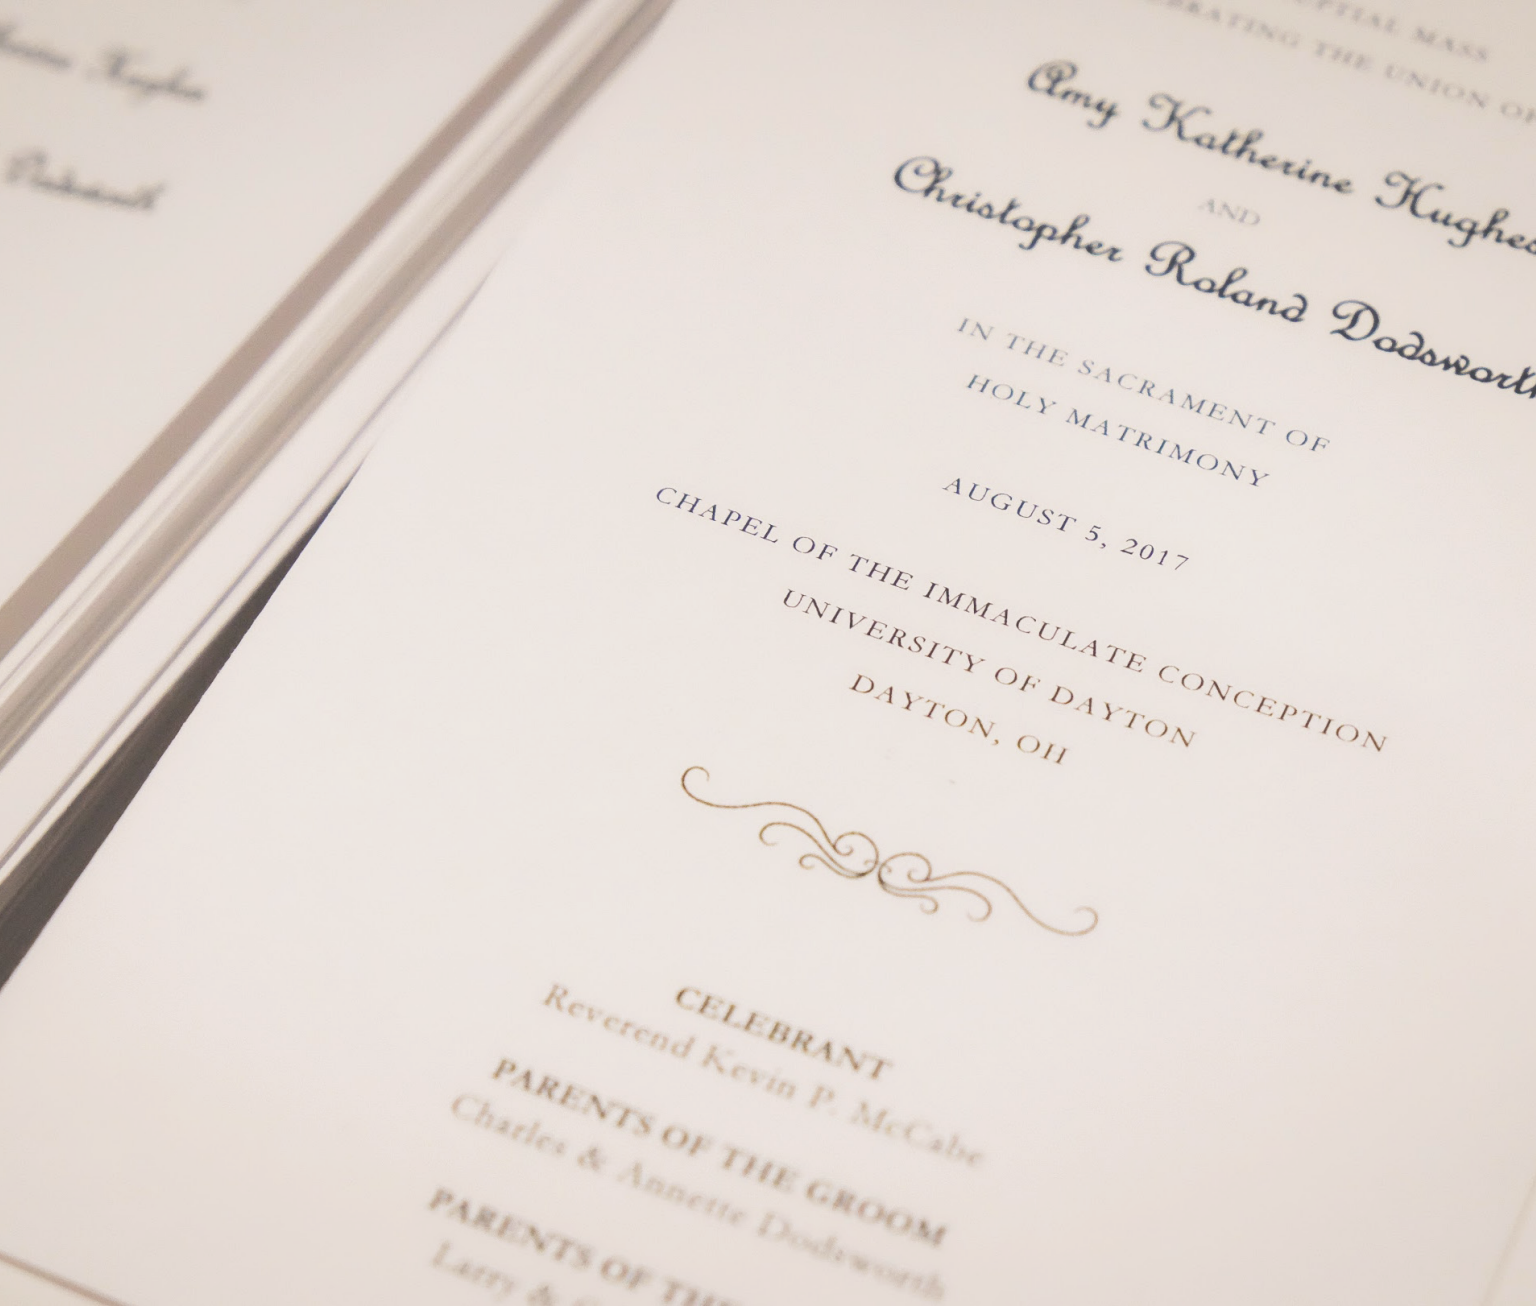 PTIAL MASS
BRATING THE UNION OF
Amy Katherine Hughes
AND
Christopher Roland Dodsworth
IN THE SACRAMENT OF
HOLY MATRIMONY
AUGUST 5, 2017
CHAPEL OF THE IMMACULATE CONCEPTION
UNIVERSITY OF DAYTON
DAYTON, OH
CELEBRANT
Reverend Kevin P. McCabe
PARENTS OF THE GROOM
Charles & Annette Dodsworth
PARENTS OF THE
Larry &